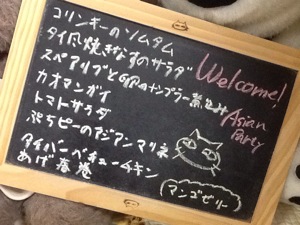 コリンキーのソムタム
タイ風焼きなすのサラダ
スペアリブと卵のナンプラー煮込み
カオマンガイ
トマトサラダ
ぷちピーのアジアンマリネ
タイバーベキューチキン
あげ春巻
Welcome!
Asian
Party
マンゴゼリー